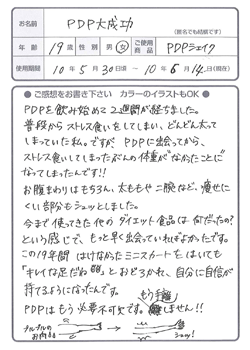 お名前 PDP大成功
(匿名でも結構です)
年齢 19歳 性別 男・女 ご使用商品 PDPシェイク
使用期間 10年5月30日頃〜10年6月14日(現在)
●ご感想をお書き下さい カラーのイラストもOK●
PDPを飲み始めて2週間が経ちました。
普段からストレス食いをしてしまい、どんどん太って
しまっていた私。ですが、PDPに出会ってから、
ストレス食いしてしまったぶんの体重が“なかったことに”
なってしまったんです!!
お腹まわりはもちろん、太ももや二の腕など、痩せに
くい部分もシュッとしました。
今まで使ってきた他のダイエット食品は何だったの?
という感じで、もっと早く出会っていればよかったです。
この19年間はけなかったミニスカートをはいても
「キレイな足だね」とおどろかれ、自分に自信が
持てるようになったんです。
PDPはもう必要不可欠です。もう手離しません!!
プルプルの
お肉が
シュッ!